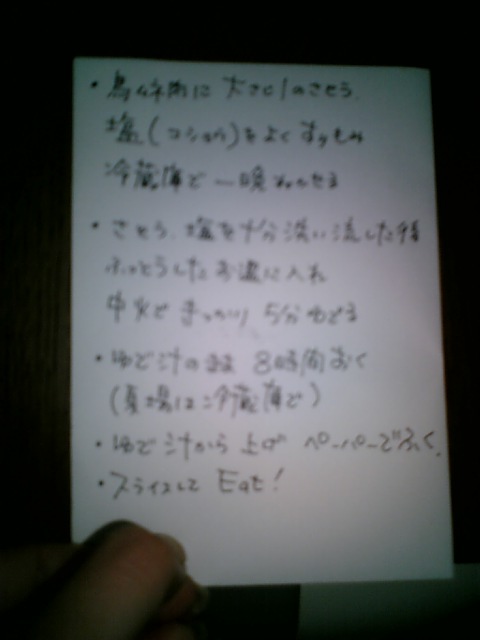 ・鳥ムネ肉に 大さじ1のさとう、
塩(コショウ)をよくすりもみ
冷蔵庫で一晩ねかせる
・さとう、塩を十分洗い流した後
ふっとうしたお湯に入れ
中火で きっかり 5分ゆでる
・ゆで汁のまま 8時間おく
(夏場は冷蔵庫で)
・ゆで汁から上げ ペーパーでふく。
・スライスして Eat!